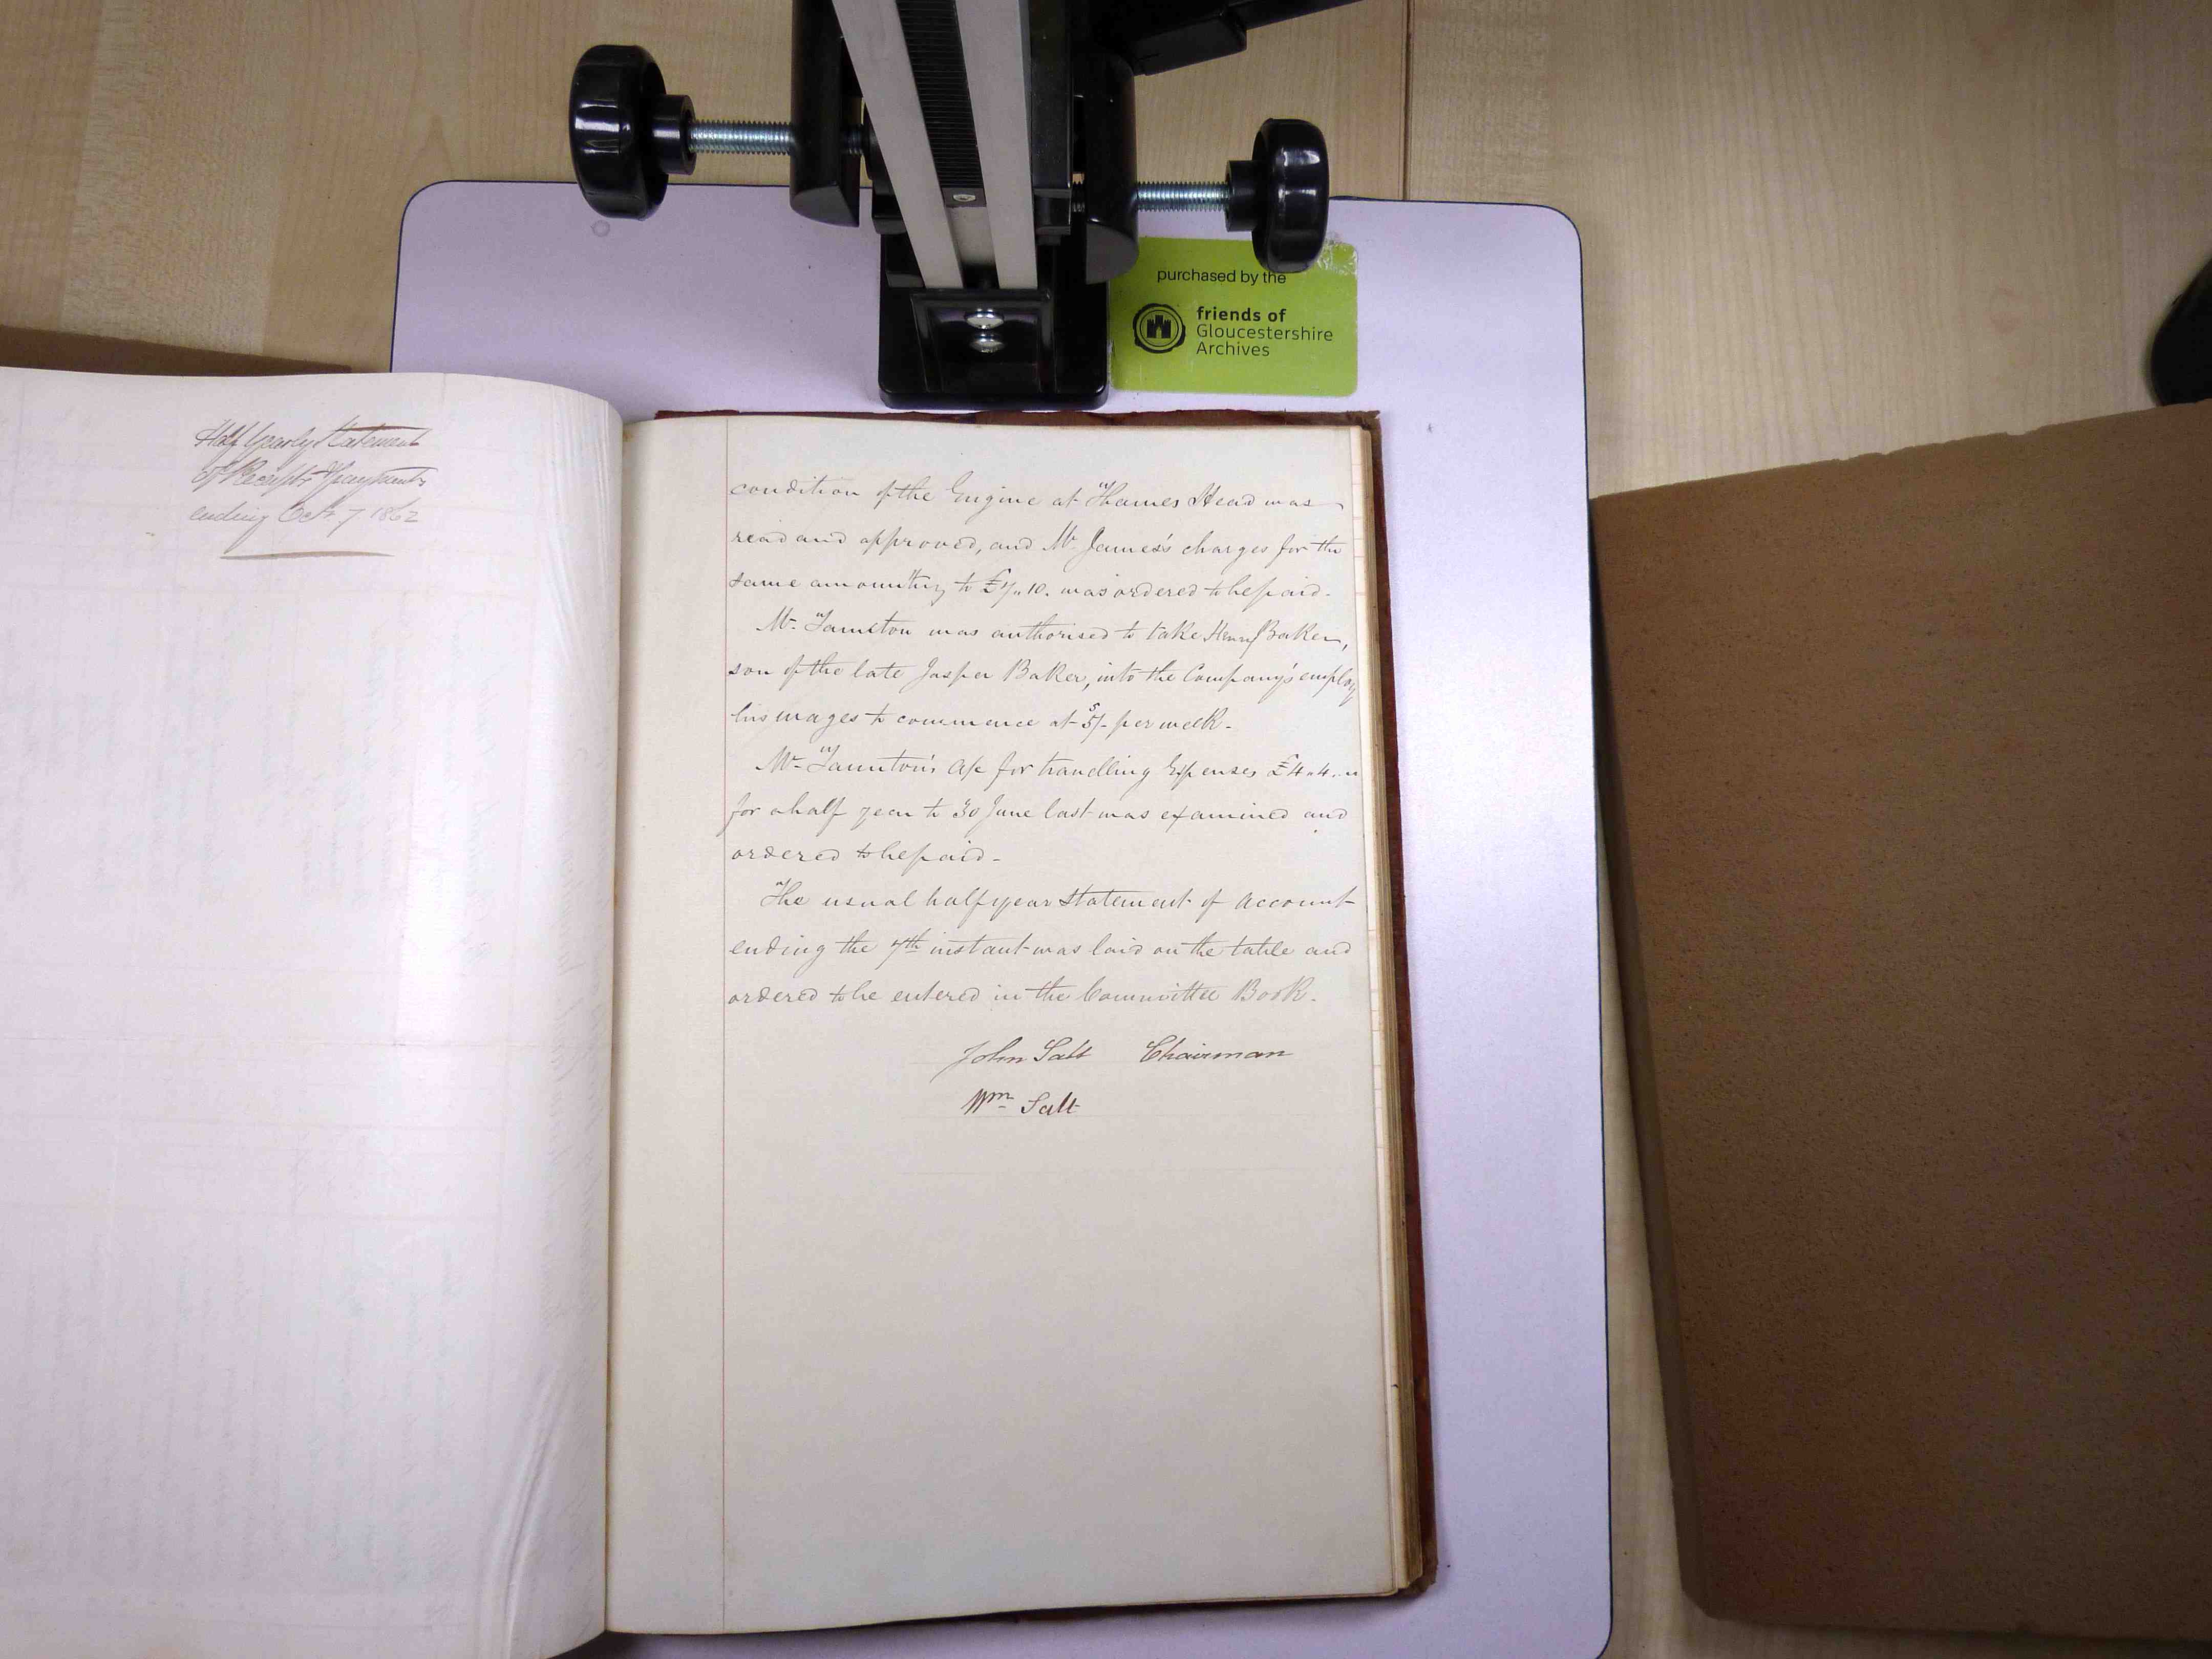 purchased by the
friends of
Gloucestershire
Archives
Half Yearly Statement
of Receipts & payments
ending Oct 7 1862
condition of the Engine at Thames Head was
read and approved, and Mr James's charges for the
same amounting to £7,,10. was ordered to be paid.
Mr Taunton was authorised to take Henry Baker,
son of the late Jasper Baker, into the Company's employ
his wages to commence at 5/- per week.
Mr Taunton's A/c for travelling Expenses £4,,4,,
for a half year to 30 June last was examined and
ordered to be paid.
The usual half year Statement of Account
ending the 7th instant was laid on the table and
ordered to be entered in the Committee Book.
John Salt Chairman
Wm Salt